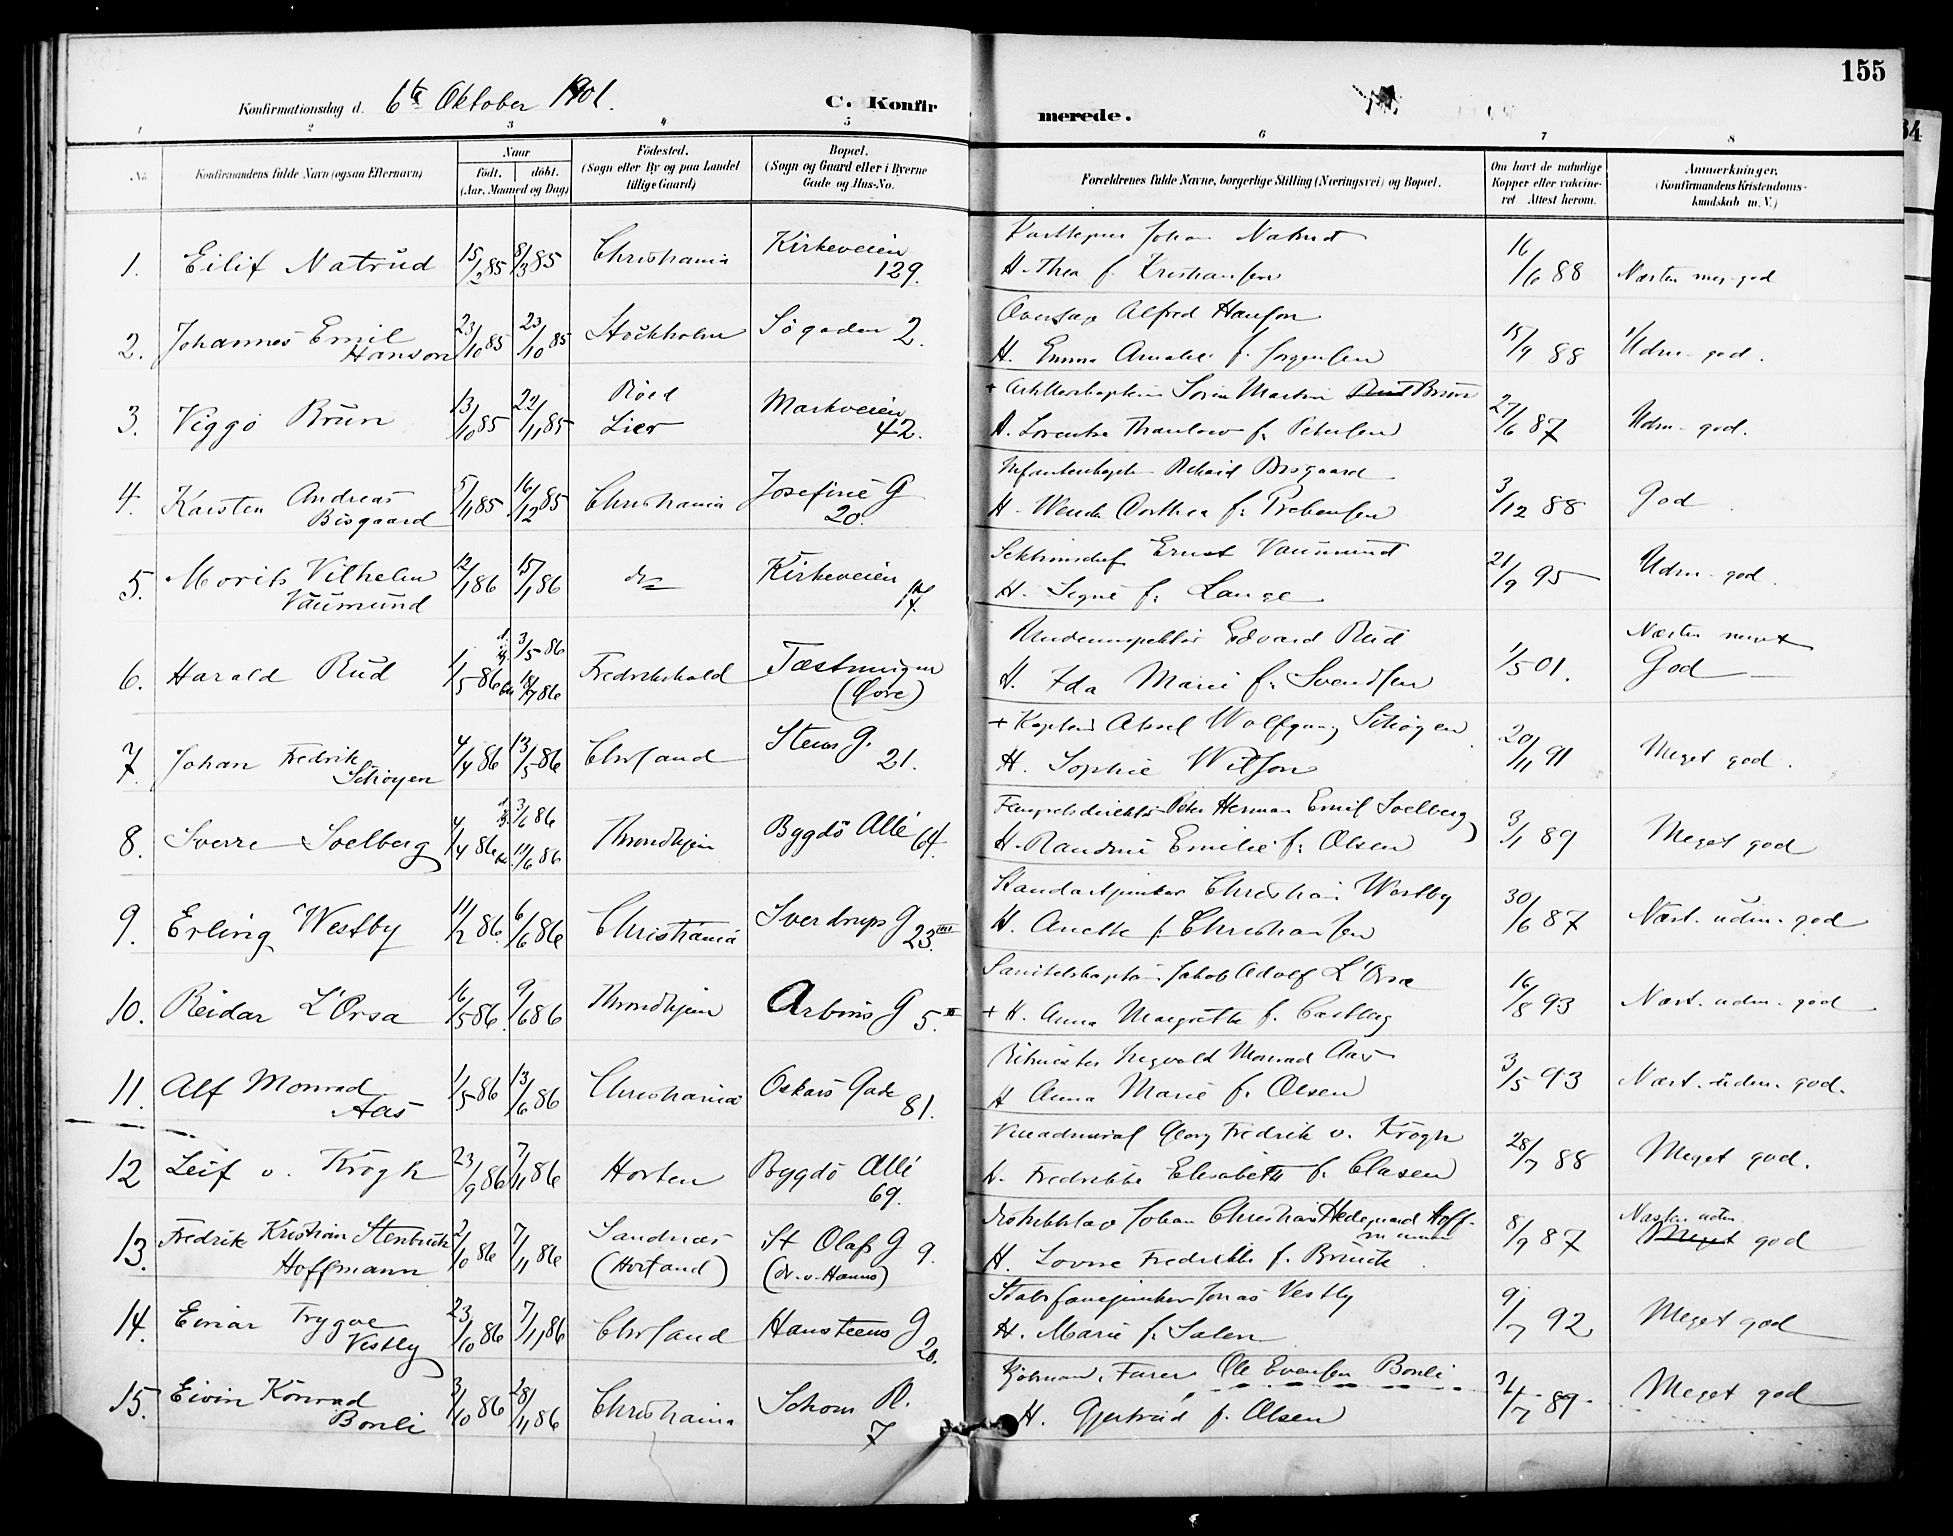 155
34
Konfirmationsdag d. 6te Oktober 1901.
C. Konfirmerede.
1 2 3 4 5 6 7 8
No.
Konfirmandens fulde Navn (ogsaa Efternavn)
Naar
født. døbt.
(Aar, Maaned og Dag)
Fødested.
(Sogn eller By og paa Landet
tillige Gaard)
Bopæl.
(Sogn og Gaard eller i Byerne
Gade og Hus-No.
Forældrenes fulde Navne, borgerlige Stilling (Næringsvei) og Bopæl.
Om havt de naturlige
Kopper eller vakcine-
ret Attest herom.
Anmærkninger.
(Konfirmandens Kristendoms-
kundskab m. V.)
1. Eilif Natrud 15/2 85 8/3 85 Christiania Kirkeveien
129.
Johan Natrud
H. Thea f. Kristiansen
16/6 88 Næsten meg. god
2. Johannes Emil
Hanson 23/10 85 23/10 85 Stockholm Søgaden 2.
Alfred Hanson
H. Emma Amalie f. Jørgensen
15/9 88 Udm. god.
3. Viggo Brun 13/10 85 22/11 85 Røed
Lier Markveien
42.
+ Søren Martin Brun
H. Lorentze Thaulow f. Petersen
27/6 87 Udm. god.
4. Karsten Andreas
Bisgaard 5/11 85 16/12 85 Christiania Josefine G
20.
Bisgaard
H. Wenda Dorthea f. Prebensen
3/12 88 God
5. Morits Vilhelm
Vaumund 12/1 86 15/1 86 do Kirkeveien
17.
Sektionschef Ernst Vaumund
H. Signe f. Lange
21/9 95 Udm. god.
6. Harald Rud 1/5 86 3/5 86
18/7 86 Fredrikshald Fæstningen
(Øvre)
Edvard Rud
H. Ida Marie f. Svendsen
1/5 01. Næsten meget
God
7. Johan Fredrik
Schøyen 4/4 86 13/5 86 Chrsand Stens G.
21.
+ Kaptein Aksel Wolfgang Schøyen
H. Sophie Wilson
20/11 91 Meget god.
8. Sverre Soelberg 4/4 86 3/6 86
11/6 86 Throndhjem Bygdø Allé 64.
Fængselsdirektør Peter Herman Emil Soelberg
H. Randine Emilie f. Olsen
3/1 89 Meget god
9. Erling Westby 11/2 86 6/6 86 Christiania Sverdrups G 23.III
Standartjunker Christian Westby
H. Anette f. Christiansen
30/6 87 Næst. udm. god
10. Reidar L'Orsa 16/5 86. 9/6 86 Throndhjem Arbins G 5.III
Sanitetskaptein Jakob Adolf L'Orsa
+ H. Anna Margrethe f. Castberg
16/8 93 Næst. udm. god
11. Alf Monrad
Aas 1/5 86 13/6 86 Christiania Oskars Gade
81.
Ritmester Ingvald Monrad Aas
H Anna Marie f. Olsen
3/5 93 Næst. udm. god.
12 Leif v. Krogh 23/9 86 7/11 86 Horten Bygdø Allé
69.
Georg Fredrik v. Krogh
H. Fredrikke Elisabeth f. Clasen
28/7 88 Meget god.
13. Fredrik Kristian Stenbuch
Hoffmann 2/10 86 7/11 86 Sandnæs
(Horland) St Olafs G 9.
(dr. v. Hanno)
Johan Christian Hedegaard Hoff-
mann
H. Lovise Fredrikke f. Brinck
8/9 87 Næsten udm.
Meget god
14. Einar Trygve
Vestly 23/10 86 7/11 86 Chrsand Hansteens G
20.
Stabsfanejunker Jonas Vestly
H. Marie f. Salen
9/7 92 Meget god
15. Eivin Konrad
Bonli 3/10 86 28/11 86 Christiania Schous Pl.
7
Ole Evensen Bonli
H. Gjertrud f. Olsen
31/7 89. Meget god